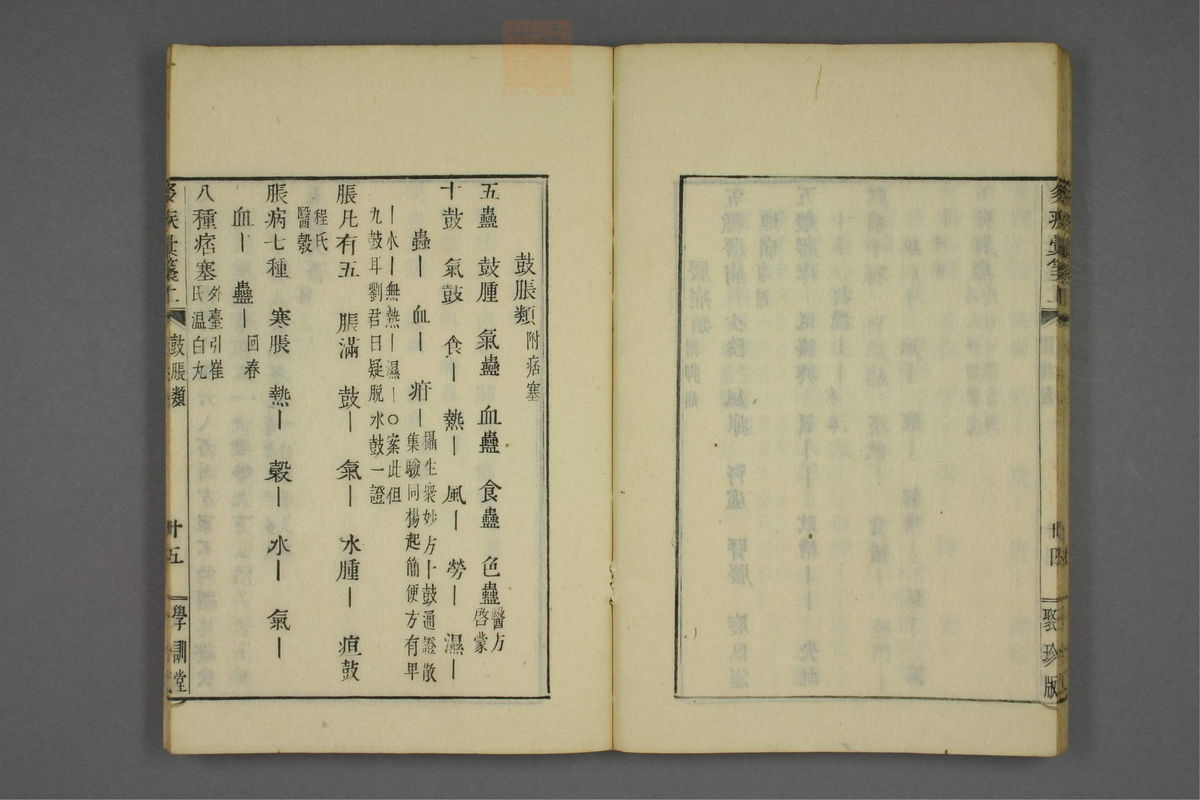 疾彙
廿四
聚珍版
鼓脹類附痞塞
五蠱 鼓腫 氣蠱 血蠱 食蠱 色蠱醫方
啓蒙
十鼓 氣鼓 食｜ 熱｜ 風｜ 勞｜ 濕｜
蟲｜ 血｜ 疳｜攝生衆妙方十鼓通證散
集驗同楊起簡便方有单
｜水｜無熱｜濕｜○案此但
九鼓耳劉君曰疑脱水鼓一證
脹凡有五 脹滿 鼓｜ 氣｜ 水腫｜ 疸鼓
程氏
醫彀
脹病七種 寒脹 熱｜ 穀｜ 水｜ 氣｜
血｜ 蠱｜回春
八種痞塞外臺引崔
氏温白丸
疾彙
鼓脹類
廿五
學訓堂